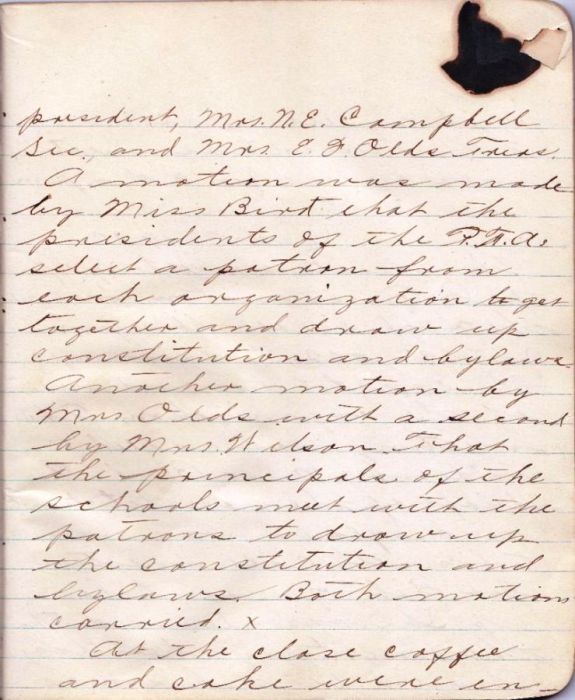 president, Mrs. N. E. Campbell
Sec., and Mrs. E. F. Olds Treas.
A motion was made
by Miss Bird that the
presidents of the P.T.A.
select a patron from
each organization to get
together and draw up
constitution and bylaws.
Another motion by
Mrs Olds with a second
by Mrs. Wilson. That
the principals of the
schools meet with the
patrons to draw up
the constitution and
bylaws. Both motions
carried. x
At the close coffee
and cake were en